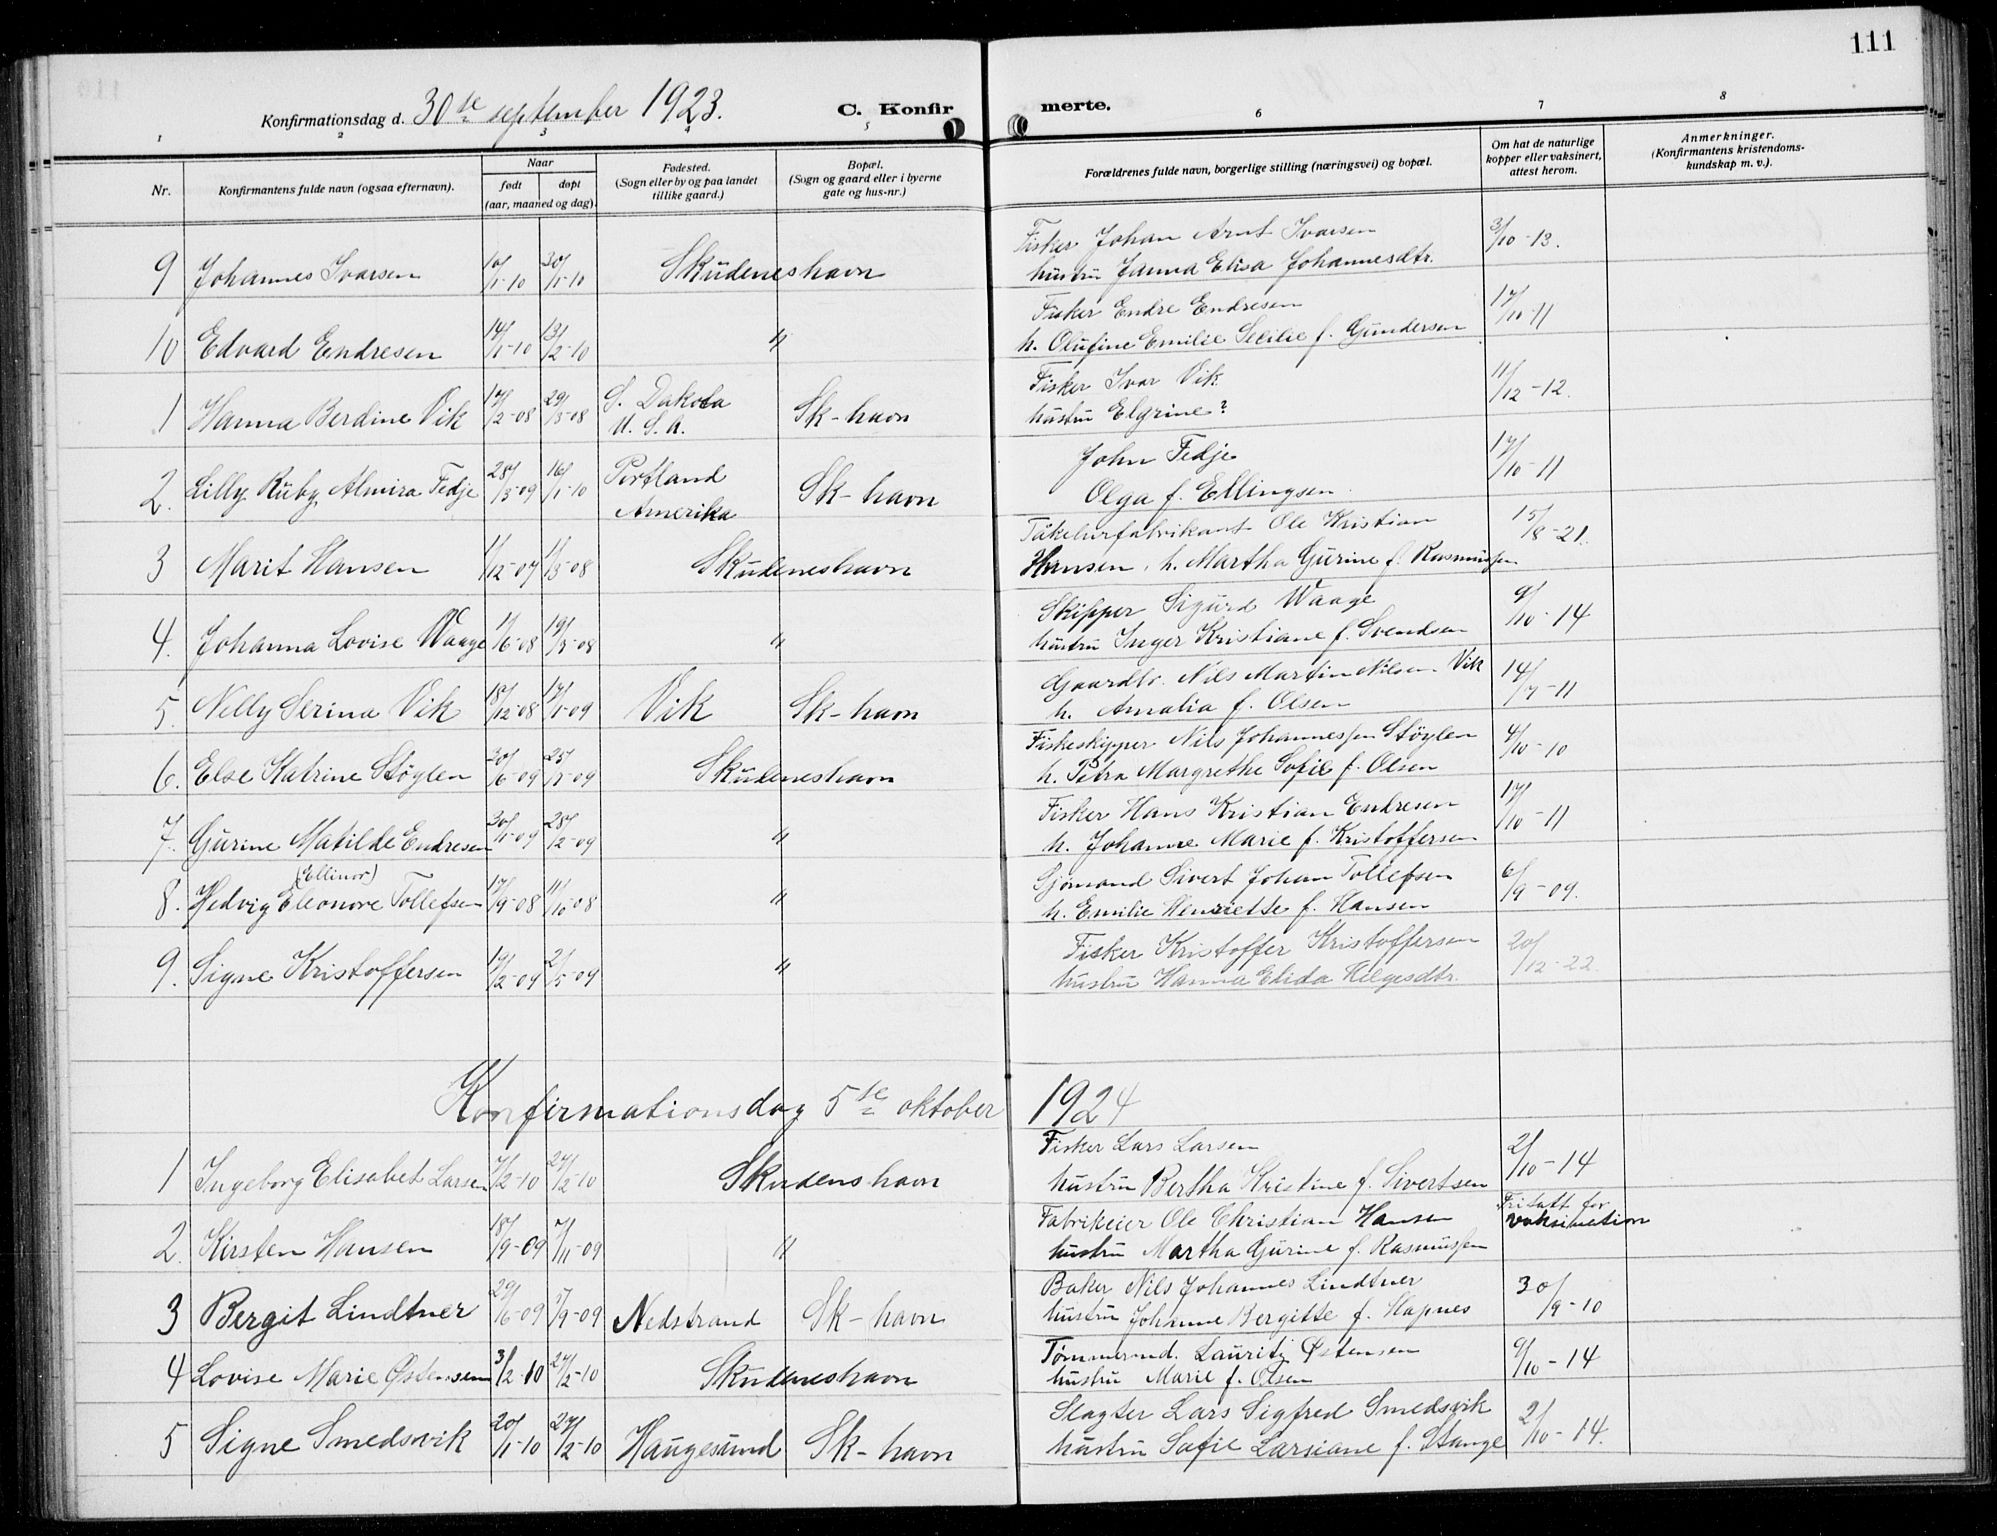 111
Konfirmationsdag d. 30te september 1923. C. Konfirmerte.
1 2 3 4 5 6 7 8
Nr. Konfirmantens fulde navn (ogsaa efternavn). Naar født døpt (aar, maaned og dag). Fødested. (Sogn eller by og paa landet tillike gaard.) Bopæl. (Sogn og gaard eller i byerne gate og hus-nr.) Forældrenes fulde navn, borgerlige stilling (næringsvei) og bopæl. Om hat de naturlige kopper eller vaksinert, attest herom. Anmerkninger. (Konfirmantens kristendomskundskap m. v.).
9 Johannes Ivarsen 10/1-10 30/1-10 Skudeneshavn Fisker Johan Arnt Ivarsen 3/10-13.
hustru Janna Elisa Johannesdtr.
10 Edvard Endresen 14/1-10 13/2-10 " Fisker Endre Endresen 17/10-11
h. Olufine Emilie Secilie f. Gundersen
1 Hanna Berdine Vik 17/2-08 29/3-08 S. Dakota U. S. A. Sk-havn Fisker Ivar Vik 11/12-12.
hustru Elgrine?
2. Lilly Ruby Almira Fedje 28/3-09 16/1-10 Portland Amerika Sk-havn John Fedje 17/10-11
Olga f. Ellingsen
3 Marit Hansen 1/12-07 1/3-08 Skudeneshavn Tåkelurfabrikant Ole Kristian 15/8-21.
Hansen, h. Martha Gurine f. Rasmussen
4. Johanna Lovise Waage 1/6-08 19/3-08 " Skipper Sigurd Waage 9/10-14
hustru Inger Kristiane f. Svendsen
5. Nelly Serina Vik 18/12-08 17/1-09 Vik Sk-havn Gaardbr. Nils Martin Nilsen Vik 14/7-11
h. Amalia f. Olsen
6. Else Katrine Støylen 20/6-09 25/7-09 Skudeneshavn Fiskeskipper Nils Johannessen Støylen 4/10-10
h. Petra Margrethe Sofie f. Olsen
7. Gurine Matilde Endresen 30/1-09 28/2-09 " Fisker Hans Kristian Endresen 17/10-11
h. Johanne Marie f. Kristoffersen
(Ellinor)
8. Hedvig Eleonore Tollefsen 17/9-08 11/10-08 " Sjømand Sivert Johan Tollefsen 6/9-09.
h. Emilie Henriette f. Hansen
9. Signe Kristoffersen 19/2-09 2/5-09 " Fisker Kristoffer Kristoffersen 20/12-22.
hustru Hanna Elida Helgesdtr.
Konfirmationsdag 5te oktober 1924
1 Ingeborg Elisabet Larsen 7/2-10 27/2-10 Skudenshavn Fisker Lars Larsen 2/10-14
hustru Bertha Kristine f. Sivertsen
2. Kirsten Hansen 18/9-09 7/11-09 " Fabrikeier Ole Christian Hansen Fritatt for vaksination
hustru Martha Gurine f. Rasmussen
3 Bergit Lindtner 29/6-09 5/9-09 Nedstrand Sk-havn Baker Nils Johannes Lindtner 30/9-10
hustru Johanne Bergitte f. Hapnes
4 Lovise Marie Østensen 3/2-10 27/2-10 Skudeneshavn Tømmermd. Lauritz Østensen 9/10-14
hustru Marie f. Olsen
5 Signe Smedsvik 20/1-10 27/2-10 Haugesund Sk-havn Slagter Lars Sigfred Smedsvik 2/10-14.
hustru Sofie Larsiane f. Stange